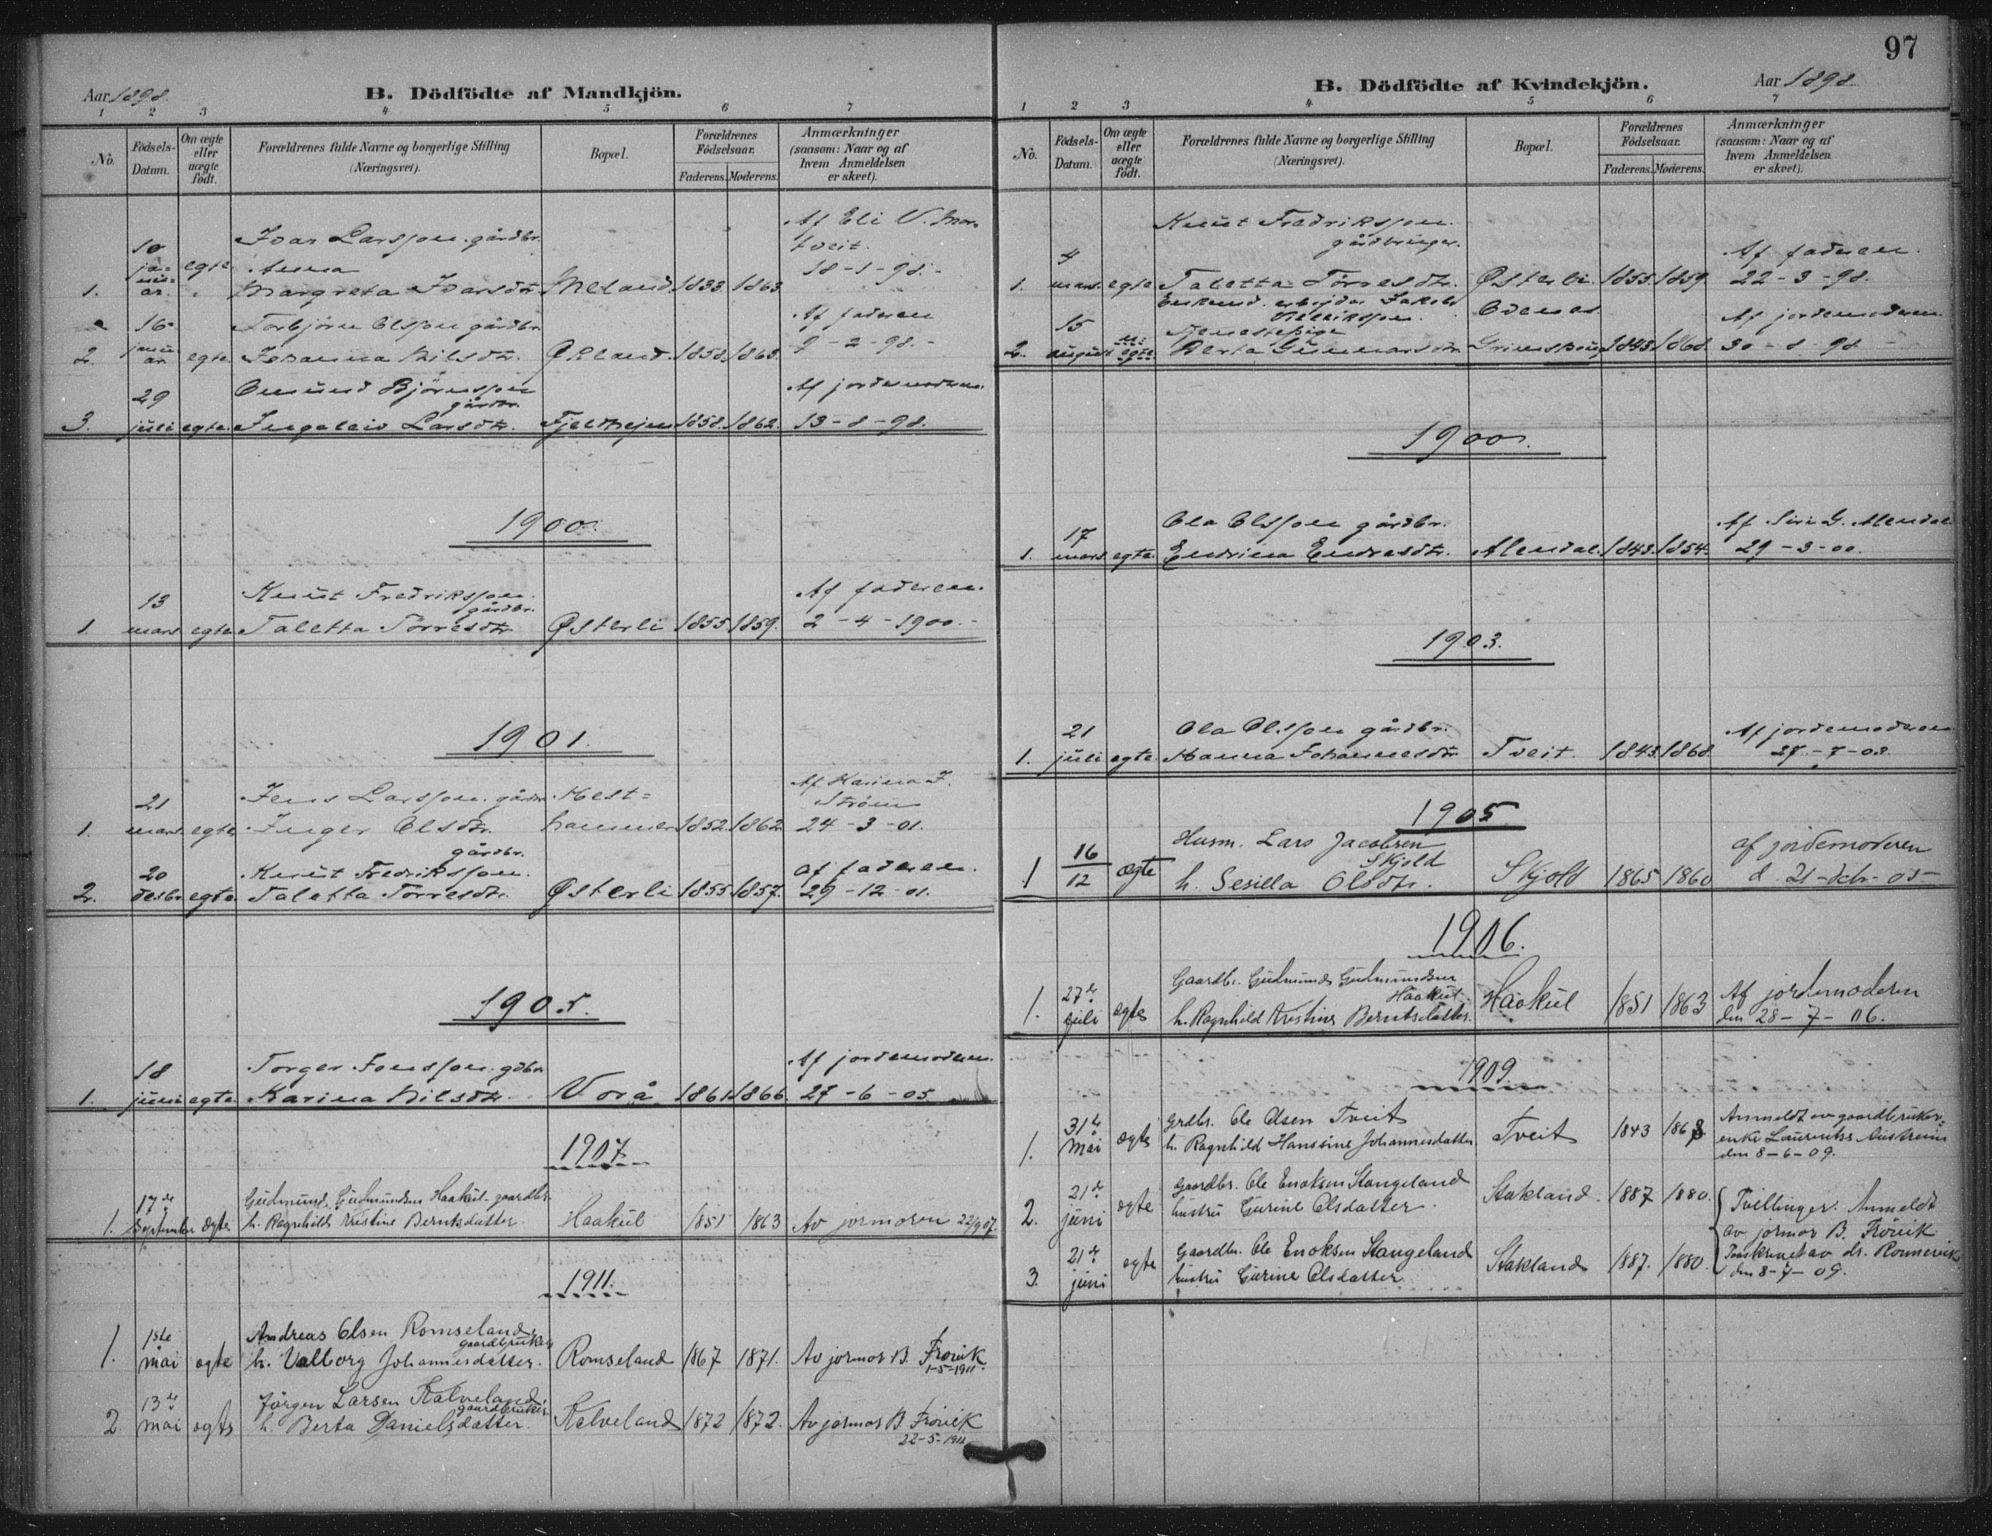 97
Aar 1898.
B. Dödfödte af Mandkjön.
1 2 3 4 5 6 7
No.
Födsels-Datum.
Om ægte eller uægte födt.
Forældrenes fulde Navne og borgerlige Stilling (Næringsvei).
Bopæl.
Forældrenes Födselsaar.
Faderens. Moderens.
Anmærkninger (saasom: Naar og af hvem Anmeldelsen er skeet).
Ivar Larsson gårdbr. Af Eli
10 januar egte Anna tveit.
1. Margreta Ivarsdtr. Meland 1833. 1863. 18-1-98.
16 Torbjörn Olsson gårdbr. Af faderen
2. januar egte Johanna Nilsdtr. Økland. 1858. 1863. 9-2-98.
29 Omund Björnsson gårdbr. Af jordemoderen.
3. juli egte Ingeleiv Larsdtr. Fjeldhejm 1858. 1862. 13-8-98.
1900.
13 Knut Fredriksson gårdbr. Af faderen.
1. mars egte Taletta Torresdtr. Østerli 1855. 1859. 2-4-1900.
1901.
21 Jens Larsson gårdbr. Hest= Af Karina J. Ström
1. mars egte Inger Olsdtr. hammer 1852. 1862. 24-3-01.
20 Knut Fredriksson gårdbr. af faderen.
2. desbr. egte Taletta Torresdtr. Østerli 1855. 1857. 29-12-01.
1905.
18 Torger Jonsson gdbr. Af jordemoderen.
1. juni egte Karina Nilsdtr. Vorå 1861. 1866. 27-6-05
1907.
17de Gudmund Gudmundsen Haakul gaardbr.
1. September ægte h. Ragnhild Kristine Berntsdatter Haakul 1851 1863 Av jormoren 22/9 07.
1911.
1ste Andreas Olsen Romseland gaardbruker
1. mai ægte h. Valborg Johannesdatter. Romseland 1867 1871. Av jormor B. Frövik 1-5-1911.
13de Jörgen Larsen Kalveland gaardbruker
2 mai ægte h. Berta Danielsdatter. Kalveland 1872 1872. Av jormor B. Frövik 22-5-1911
B. Dödfödte af Kvindekjön.
Aar 1898.
1 2 3 4 5 6 7
No.
Födsels-Datum.
Om ægte eller uægte födt.
Forældrenes fulde Navne og borgerlige Stilling (Næringsvei).
Bopæl.
Forældrenes Födselsaar.
Faderens. Moderens.
Anmærkninger (saasom: Naar og af hvem Anmeldelsen er skeet).
Knut Fredriksson gårdbruger.
4 Af faderen.
1. mars egte Taletta Torresdtr. Østerli 1855. 1859. 22-3-98.
Enkemd. arbejder Jakob
15 Tjenestepige Odenes Af jordemoderen
2. august uegte Berta Gunnarsdtr. 1843. 1868. 30-8-98
1900.
17 Ola Olsson gårdbr. Af Siri G. Alendal
1. mars egte Endrina Endresdtr. Alendal. 1843. 1854. 29-3-00.
1903.
21 Ola Olsson gårdbr. Af jordemoderen
1. juli egte Hanna Johannesdtr. Tveit. 1843. 1868. 27-7-03.
1905
16/12 Husm. Lars Jacobsen Skjold af jordemoderen
1 ægte h. Sesilla Olsdtr. Skjold 1865 1860 d. 21-debr-05
1906.
27de Gaardbr. Gudmund Gudmundsen Haakul Af jordemoderen
1. juli egte h. Ragnhild Kristine Berntsdatter. Haakul 1851 1863 den 28-7-06.
1909
31te Grdbr. Ole Olsen Tveit Anmeldt av gaardbruker-
1. mai ægte h. Ragnhild Hanssine Johannesdatter Tveit 1843 1868 enke Laurentse Austreim den 8-6-09.
21de Gaardbr. Ole Enoksen Stangeland
2. juni egte hustru Gurine Olsdatter. Stakland. 1887 1880. Tvillinger. Anmeldt av jormor B. Frövik
21de Gaardbr. Ole Enoksen Stangeland
3. juni egte hustru Gurine Olsdatter. Stakland 1887. 1880. av dr. den 8-7-09.